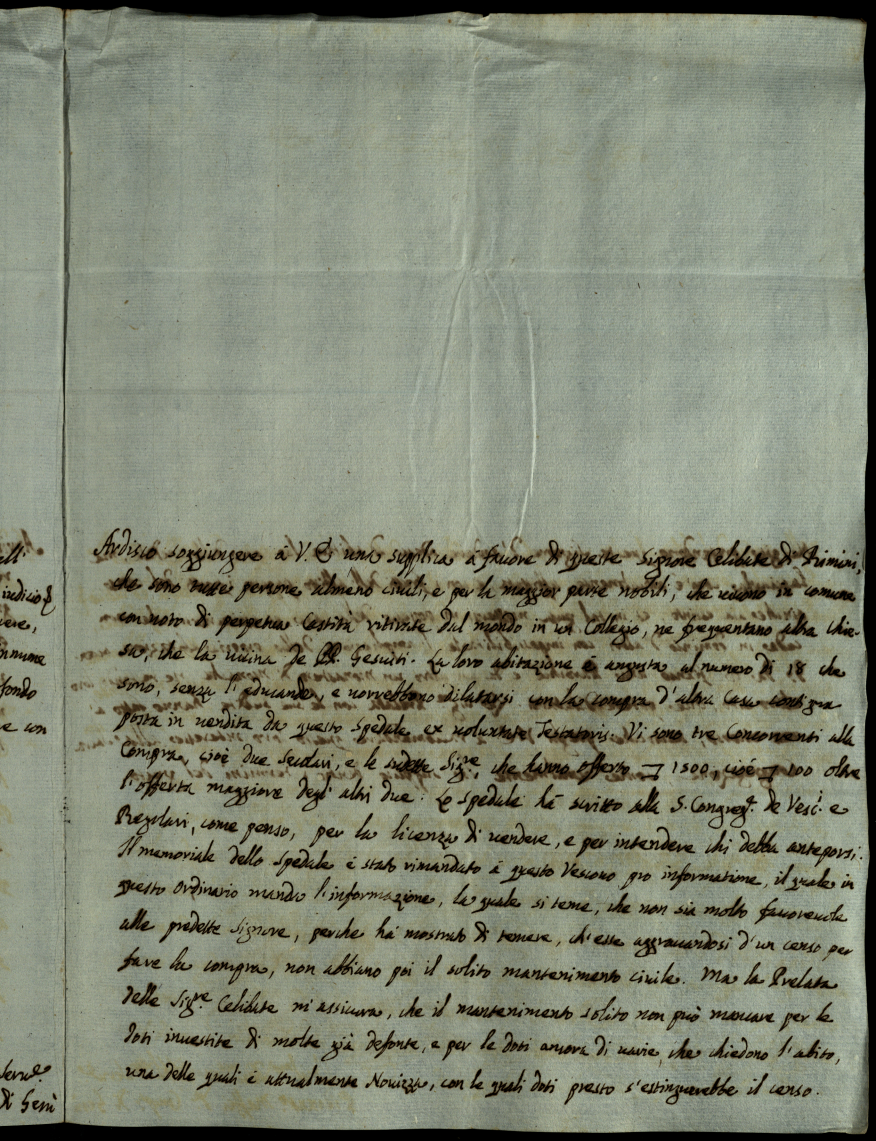 elli
iudicio p
vere,
innume
fondo
ve con
Serve.
di Gesù
Ardisco soggiungere à V. E una supplica à favore di queste Signore Celibate di Rimini,
che sono tutte persone almeno civili, e per la maggior parte nobili, che vivono in comune
con voto di perpetua Castità ritirate dal mondo in un Collegio, ne frequentano altra Chie-
sa, che la vicina de PP. Gesuiti. La loro abitazione è angusta al numero di 18 che
sono, senza l'educande, e vorrebbono dilatarsi con la compra d'altra Casa contigua
posta in vendita da questo Spedale ex voluntate Testatoris. Vi sono tre Concorrenti alla
Compra, cioè due Secolari, e le sudette Sigre, che hanno offerto 1500, cioè 100 oltre
l'offerta maggiore degl'altri due. Lo Spedale hà scritto alla S. Congregt. de Vesc.i e
Regolari, come penso, per la licenza di vendere, e per intendere chi debba anteporsi.
Il memoriale dello Spedale è stato rimandato à questo Vescovo pro informatione, il quale in
questo Ordinario manda l'informazione, la quale si teme, che non sia molto favorevole
alle predette Signore, perche hà mostrato di temere, ch'esse aggravandosi d'un censo per
fare la compra, non abbiano poi il solito mantenimento civile. Ma la Prelata
delle Sigre Celibate m'assicura, che il mantenimento solito non può mancare per le
doti investite di molte già defonte, e per le doti ancora di varie, che chiedono l'abito,
una delle quali è attualmente Novizza, con le quali doti presto s'estinguerebbe il censo.